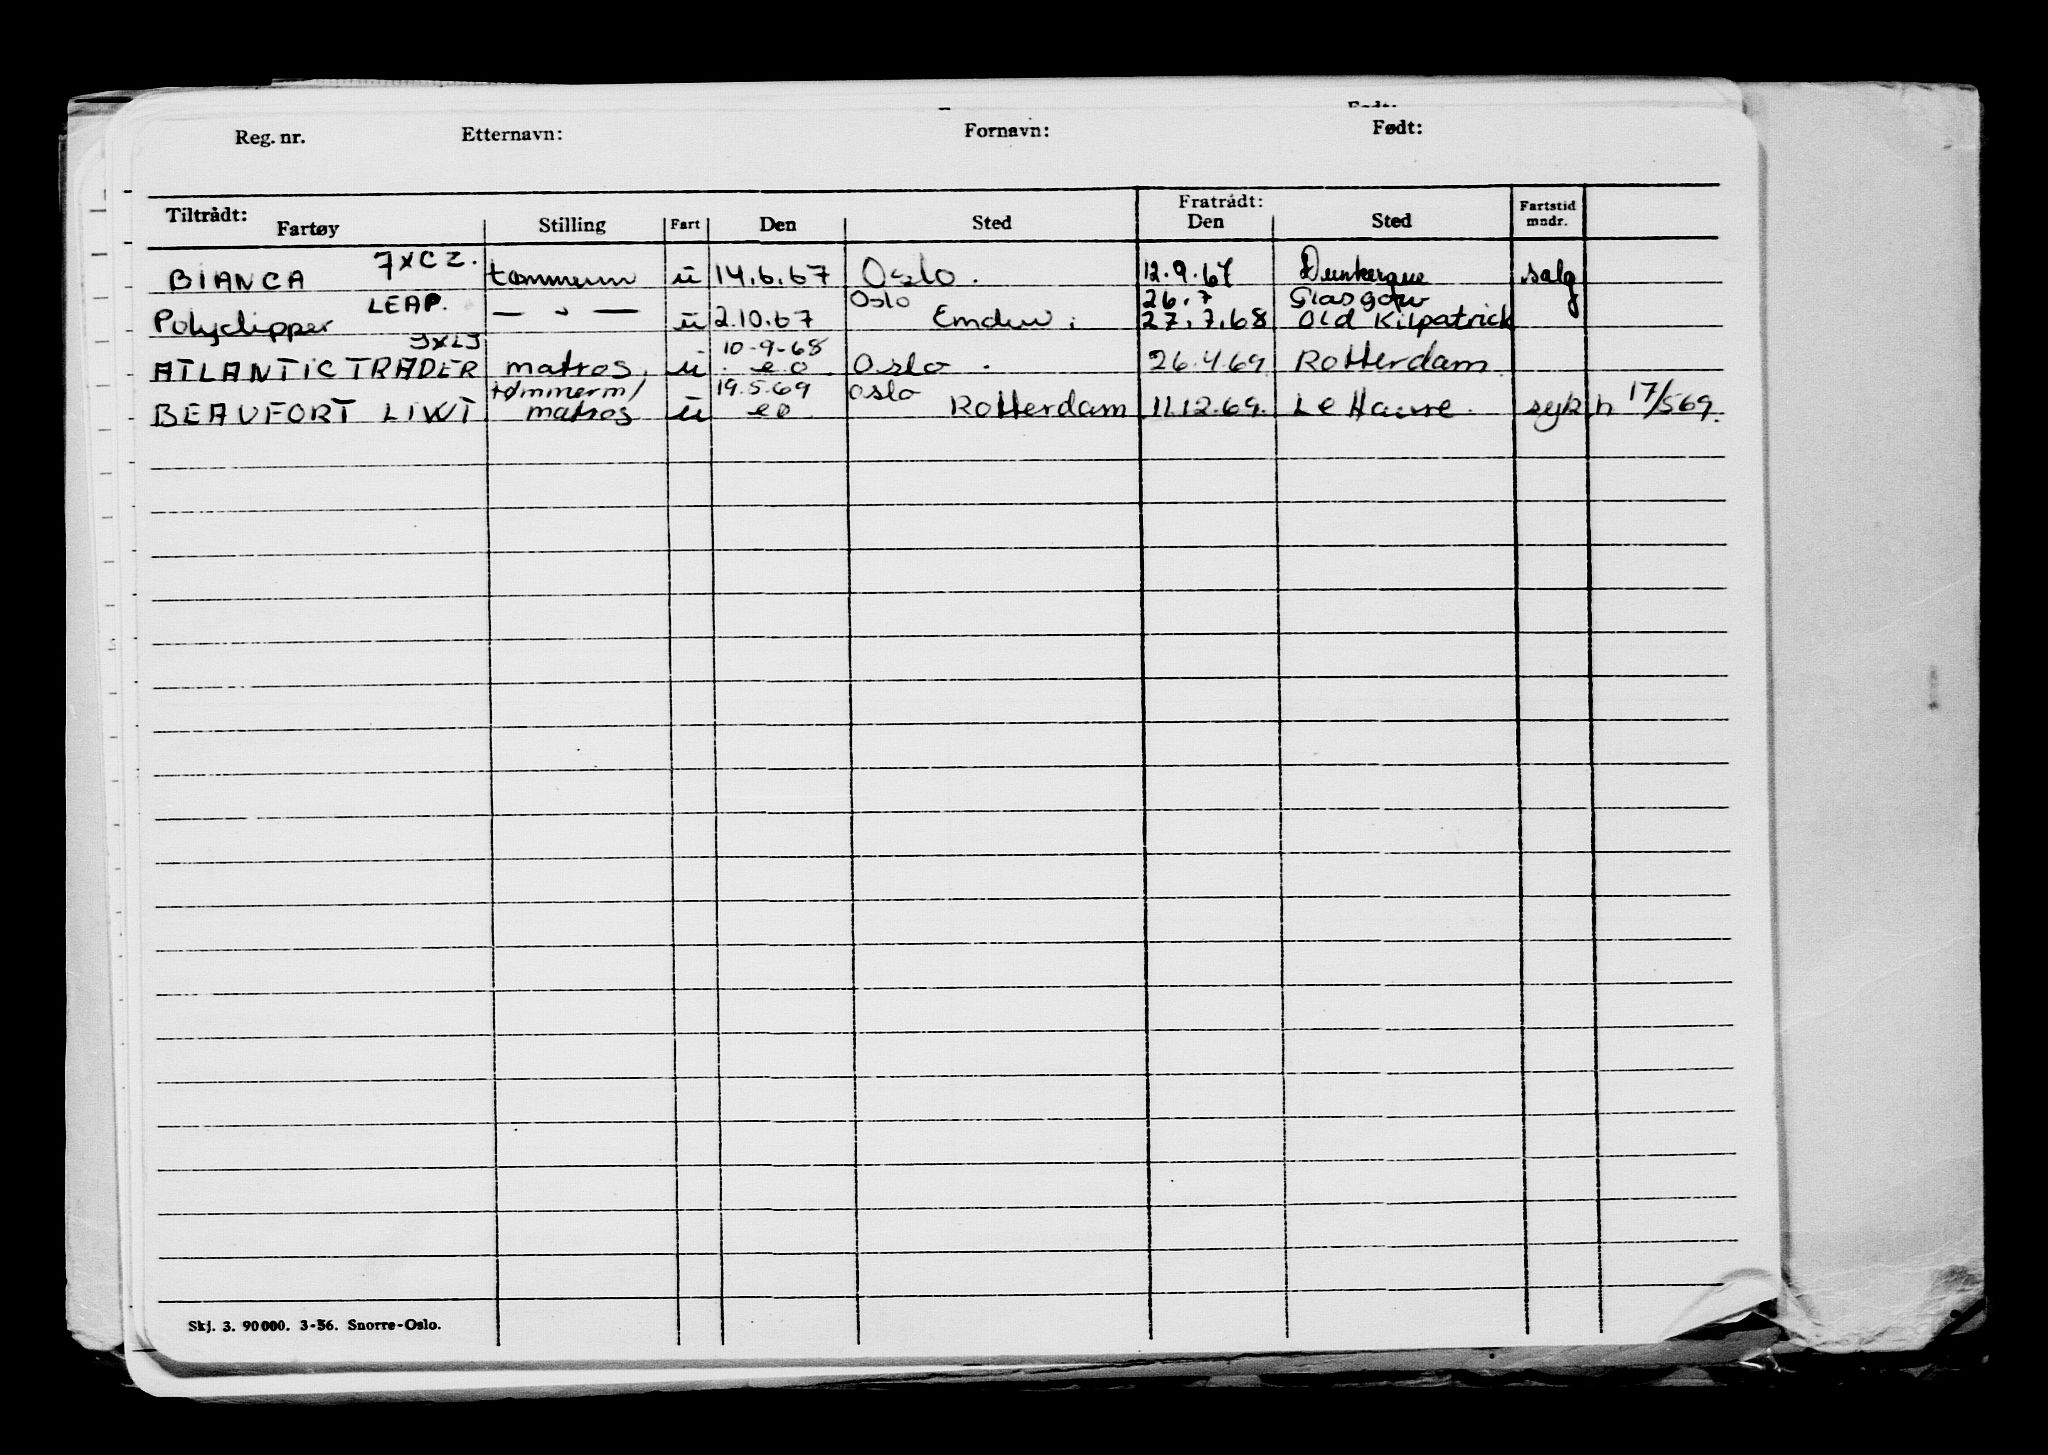 Reg. nr. Etternavn: Fornavn: Født:
Tiltrådt: Fratrådt: Fartstid
Fartøy Stilling Fart Den Sted Den Sted mndr.
BIANCA 7XCZ. tømmerm u 14.6.67 Oslo. 12.9.67 Dunkerque salg
LEAP. Oslo 26.7 Glasgow
Polyclipper — " — u 2.10.67 Emden. 27.7.68 Old Kilpatrick
JXLJ 10-9-68
ATLANTIC TRADER matros. u eo Oslo. 26.4.69 Rotterdam
tømmerm/ 19.5.69 Oslo
BEAUFORT matros u eo Rotterdam 11.12.69. Le Havre. syk h 17/569.
Skj. 3. 90000. 3-56. Snorre-Oslo.